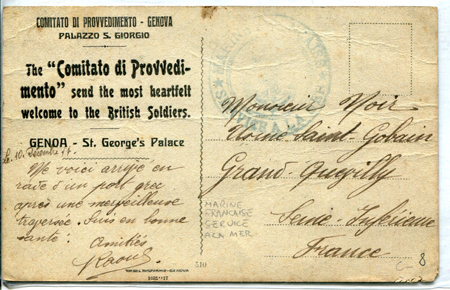 COMITATO DI PROVVEDIMENTO - GENOVA
PALAZZO S. GIORGIO
The "Comitato di Provvedi-
mento" send the most heartfelt
welcome to the British Soldiers.
GENOA - St. George's Palace
Le 10 Décembre 17.
Me voici arrivé en
rade d'un port grec
après une merveilleuse
traversée. Suis en bonne
santé. Amitiés
Raoul
510
Monsieur Noir
Usine Saint Gobain
Grand-Quevilly
Seine-Inférieure
France
MARINE
FRANCAISE
SERVICE
A LA MER-
8